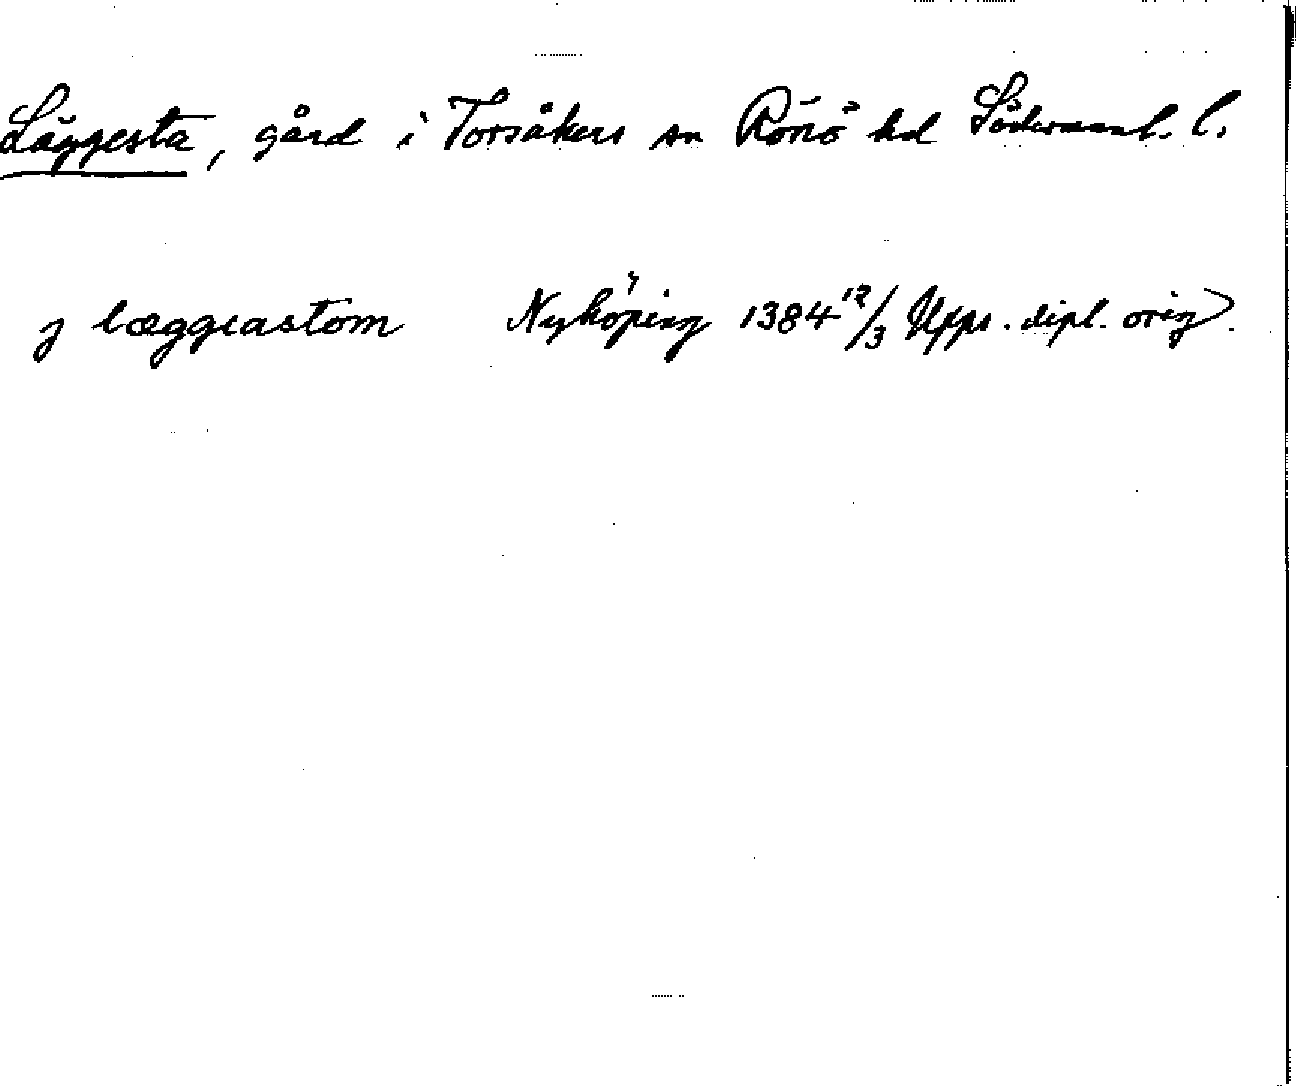 Läggesta, gård i Torsåkers sn Rönö hd Södermanl. l.
j læggiastom Nyköping 1384 12/3 Upps. dipl. orig.